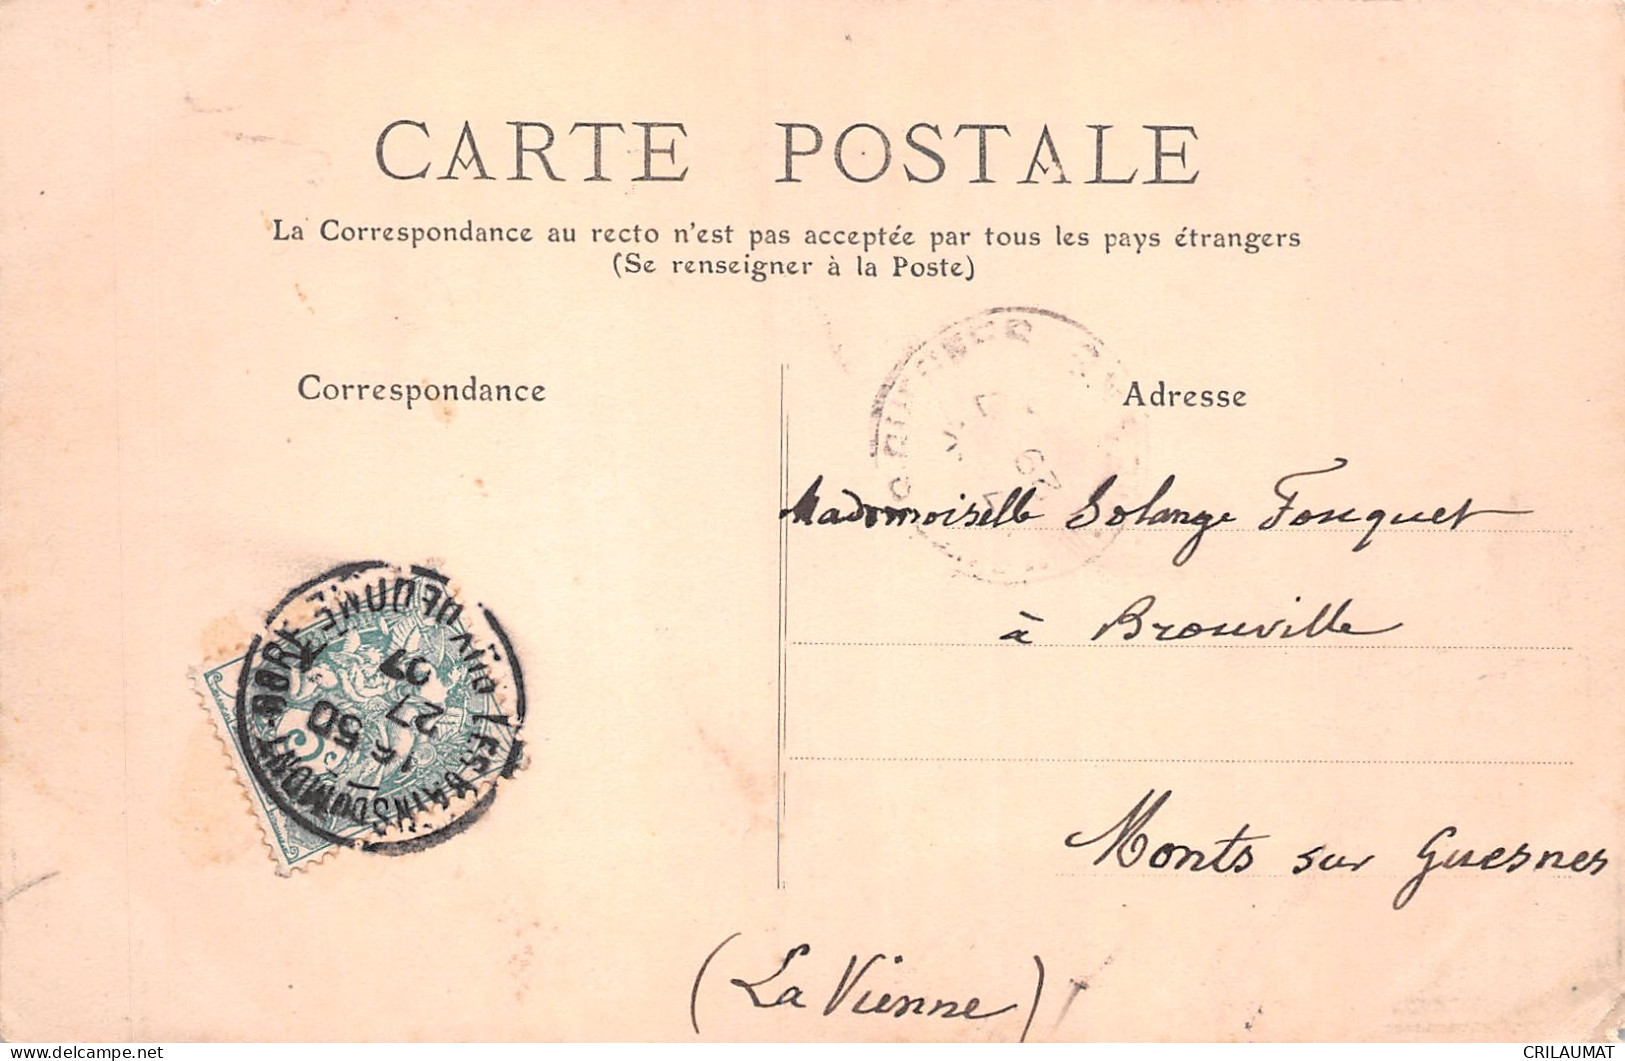 CARTE POSTALE
La Correspondance au recto n'est pas acceptée par tous les pays étrangers
(Se renseigner à la Poste)
Correspondance
Adresse
Mademoiselle Solange Fouquet
à Brouville
Monts sur Guesnes
(La Vienne)
LES BAINS DU MONT-DORE PUY DE DOME
16 50
27
07
29
CRILAUMAT